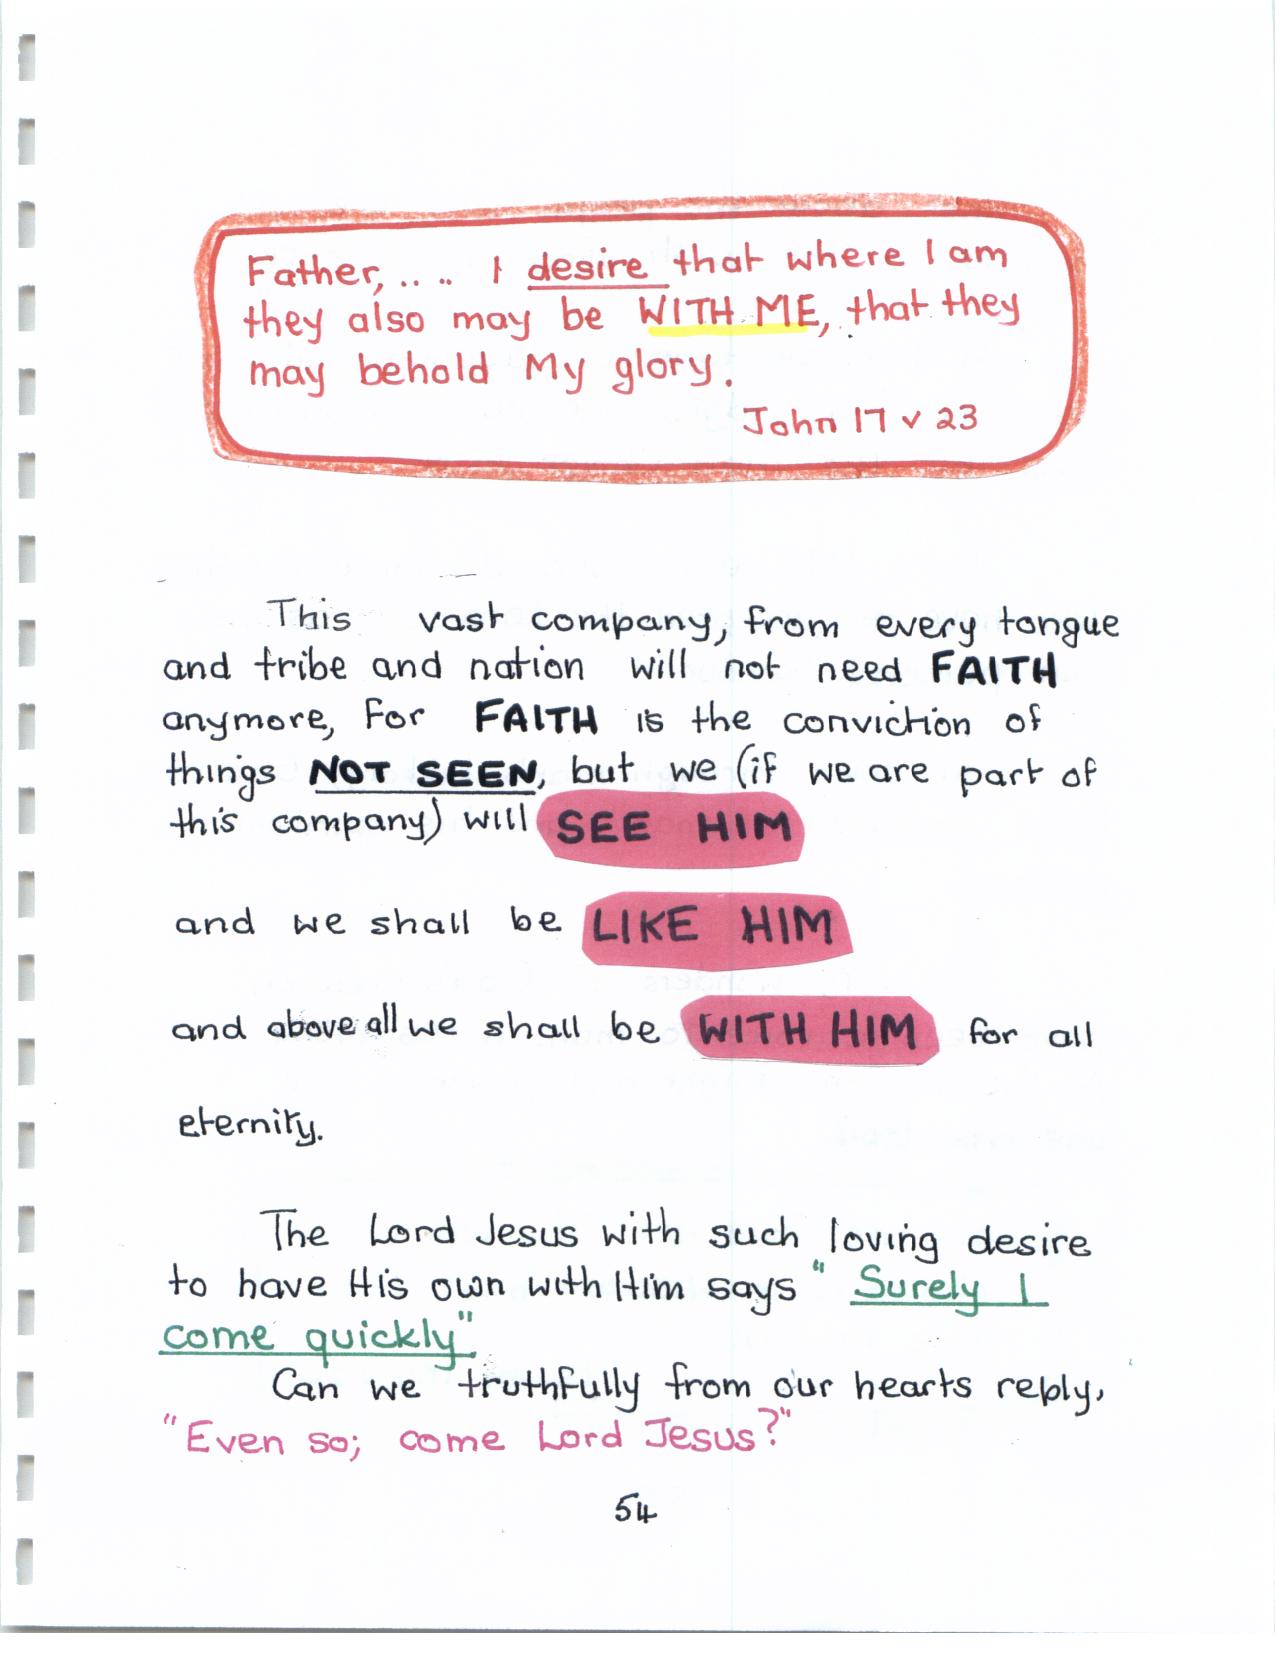 Father, .... I desire that where I am
they also may be WITH ME, that they
may behold My glory.
John 17 v 23
This vast company, from every tongue
and tribe and nation will not need FAITH
anymore, for FAITH is the conviction of
things NOT SEEN, but we (if we are part of
this company) will SEE HIM
and we shall be LIKE HIM
and above all we shall be WITH HIM for all
eternity.
The Lord Jesus with such loving desire
to have His own with Him says "Surely I
come quickly"
Can we truthfully from our hearts reply,
"Even so; come Lord Jesus?"
54